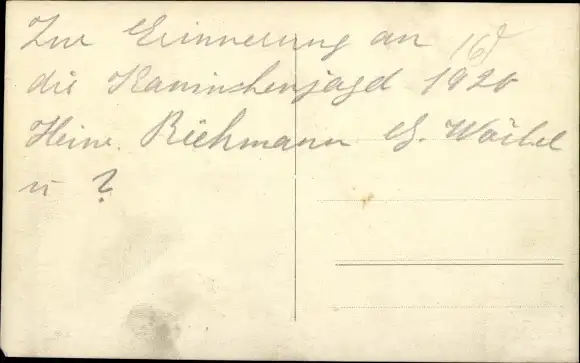 Zur Erinnerung an 16
die Kaninchenjagd 1920
Heinr. Riehmann G. Wöchel
u ?